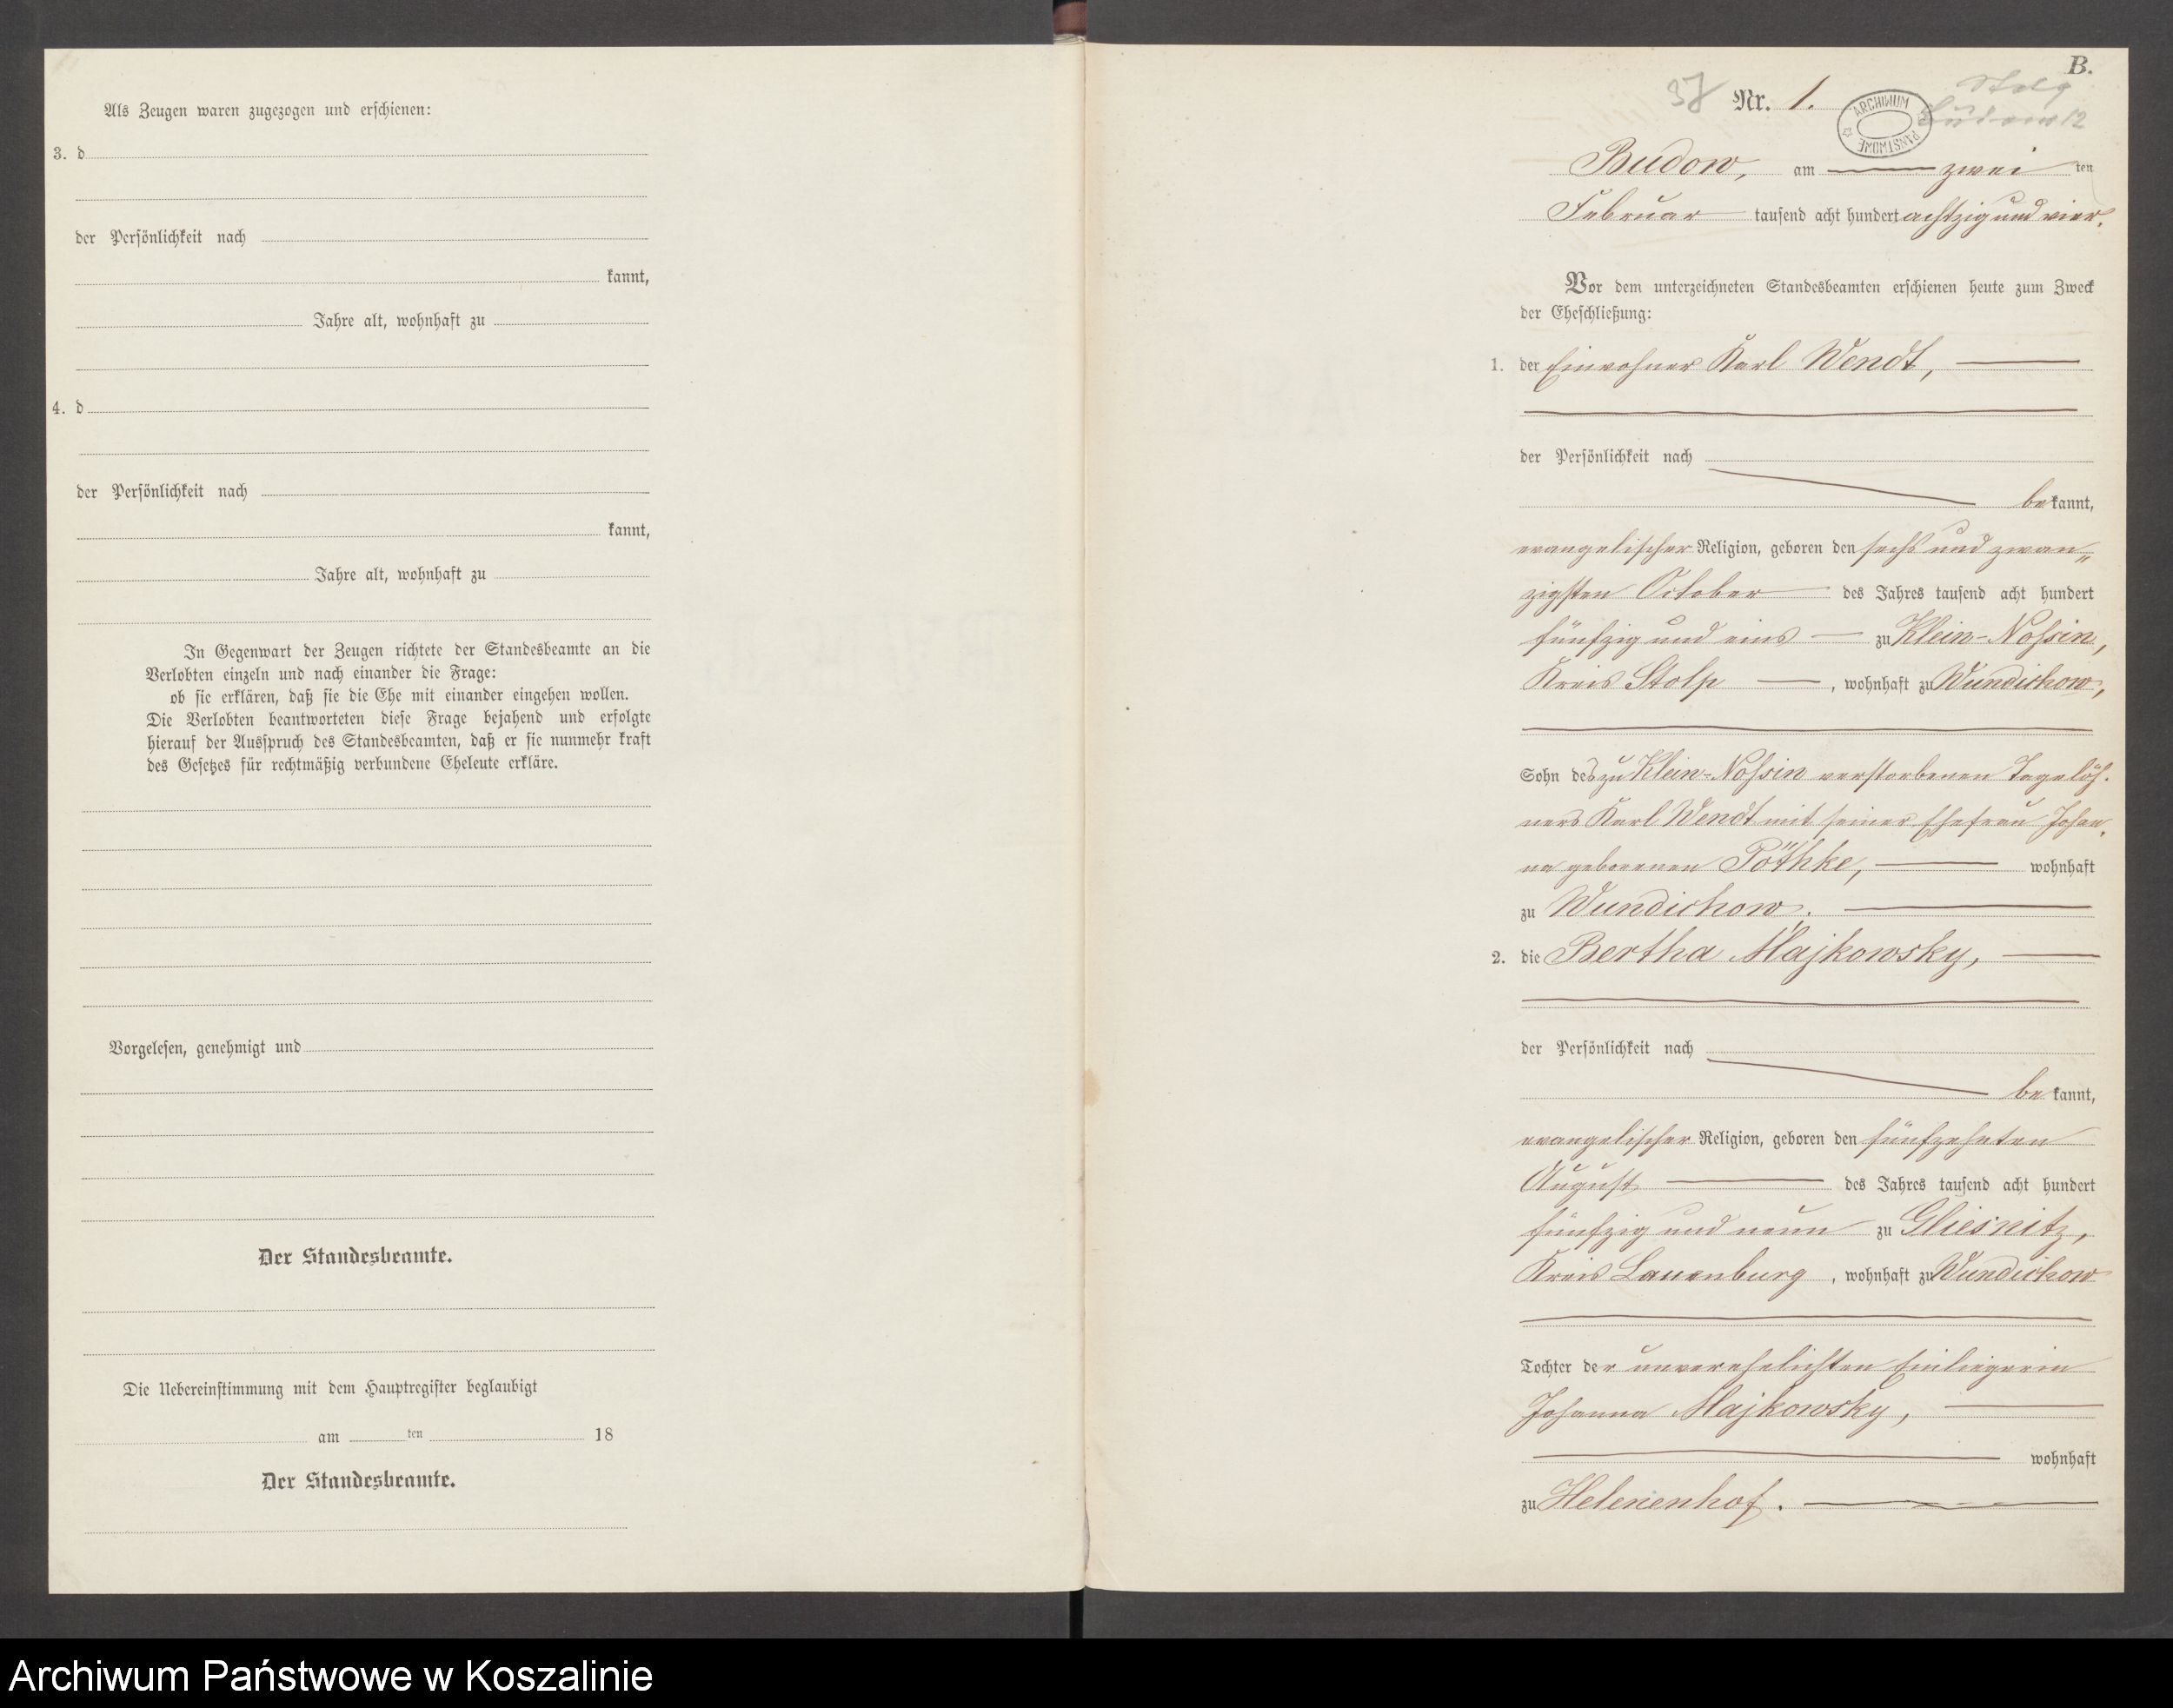 Als Zeugen waren zugezogen und erschienen:
3. d
der Persönlichkeit nach
kannt,
Jahre alt, wohnhaft zu
4. d
der Persönlichkeit nach
kannt,
Jahre alt, wohnhaft zu
In Gegenwart der Zeugen richtete der Standesbeamte an die
Verlobten einzeln und nach einander die Frage:
ob sie erklären, daß sie die Ehe mit einander eingehen wollen.
Die Verlobten beantworteten diese Frage bejahend und erfolgte
hierauf der Ausspruch des Standesbeamten, daß er sie nunmehr kraft
des Gesetzes für rechtmäßig verbundene Eheleute erkläre.
Vorgelesen, genehmigt und
Der Standesbeamte.
Die Uebereinstimmung mit dem Hauptregister beglaubigt
am ten 18
Der Standesbeamte.
B.
Nr. 1.
ARCHIWUM PAŃSTWOWE
Budow, am zwei ten
Februar tausend acht hundert achtzig und vier.
Vor dem unterzeichneten Standesbeamten erschienen heute zum Zweck
der Eheschließung:
1. der Einwohner Karl Wendt,
der Persönlichkeit nach
bekannt,
evangelischer Religion, geboren den sechs und zwan„
zigsten October des Jahres tausend acht hundert
fünfzig und eins zu Klein-Nossin,
Kreis Stolp, wohnhaft zu Wundichow,
Sohn des zu Klein-Nossin verstorbenen Tagelöh-
ners Karl Wendt mit seiner Ehefrau Johan-
na geborenen Pöthke, wohnhaft
zu Wundichow.
2. die Bertha Majkowsky,
der Persönlichkeit nach
bekannt,
evangelischer Religion, geboren den fünfzehnten
August des Jahres tausend acht hundert
fünfzig und neun zu Gliesnitz,
Kreis Lauenburg, wohnhaft zu Wundichow
Tochter der unverehelichten Einliegerin
Johanna Majkowsky,
wohnhaft
zu Helenenhof.
Archiwum Państwowe w Koszalinie